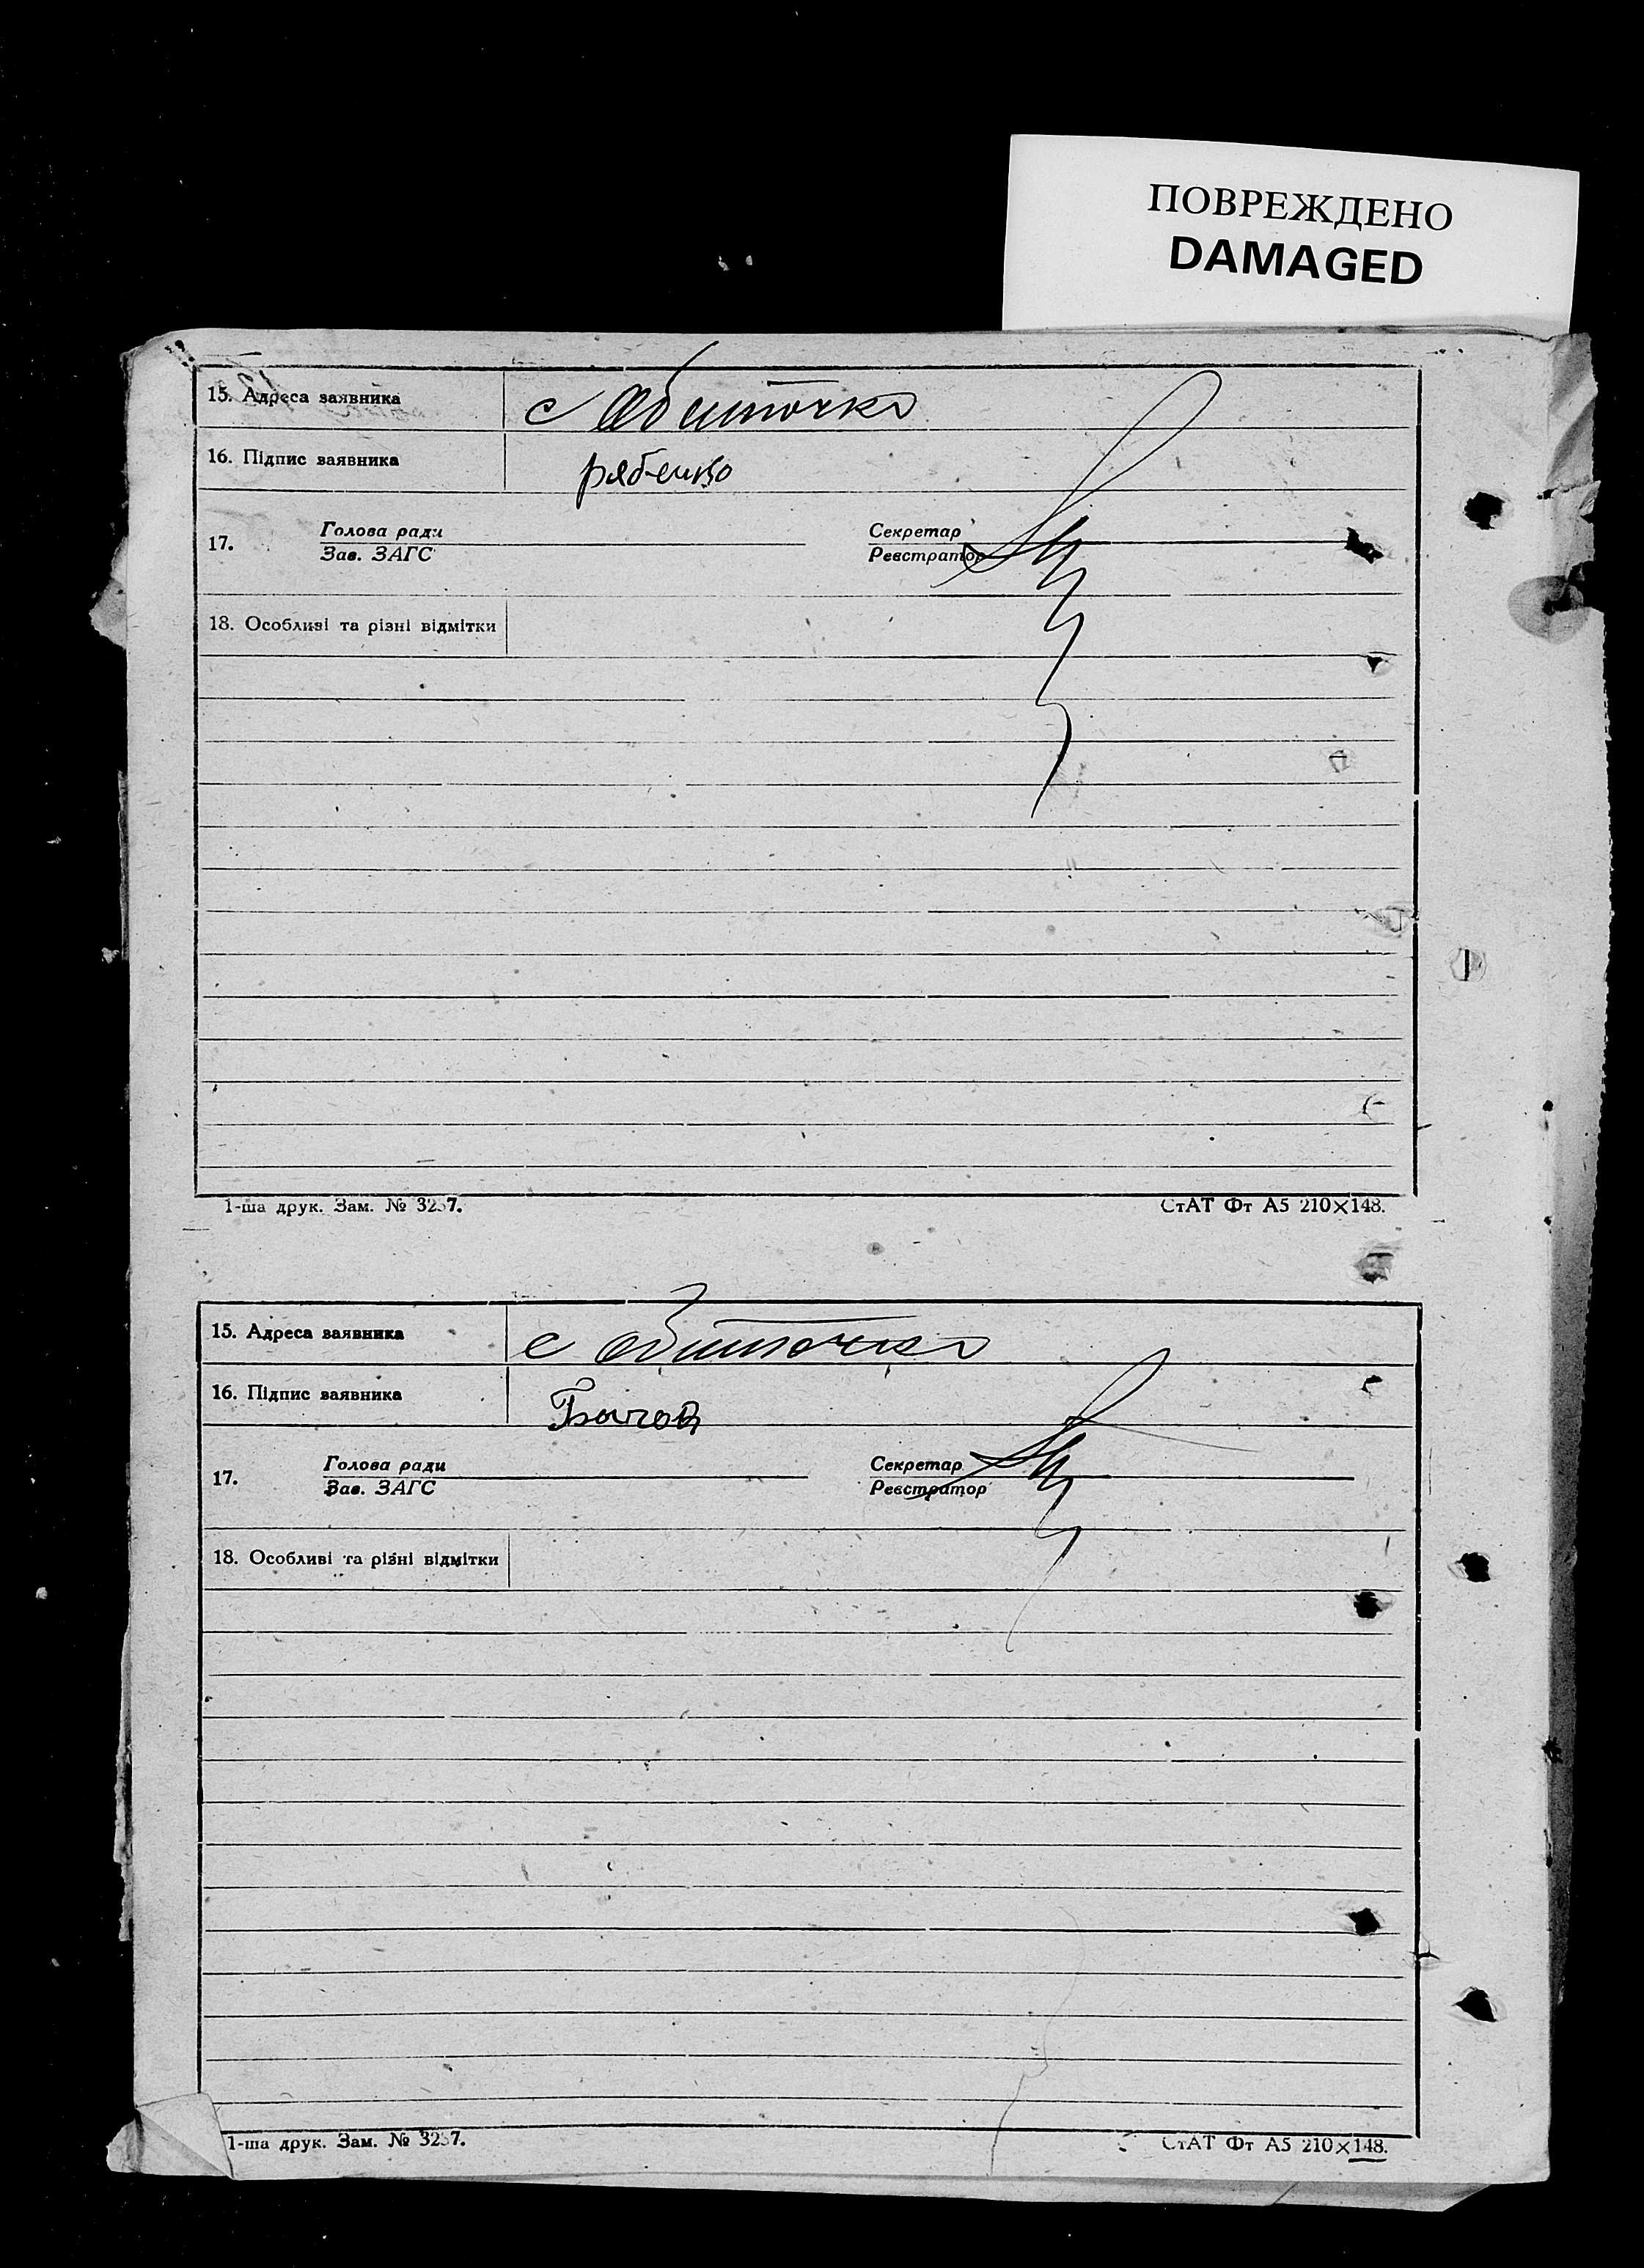 ПОВРЕЖДЕНО
DAMAGED
15. Адреса заявника с Обиточко
16. Підпис заявника рябенко
17. Голова ради Секретар
Зав. ЗАГС Реєстратор
18. Особливі та різні відмітки
1-ша друк. Зам. № 3257. СтАТ Фт А5 210×148.
15. Адреса заявника с Обиточко
16. Підпис заявника
17. Голова ради Секретар
Зав. ЗАГС Реєстратор
18. Особливі та різні відмітки
1-ша друк. Зам. № 3257. СтАТ Фт А5 210×148.